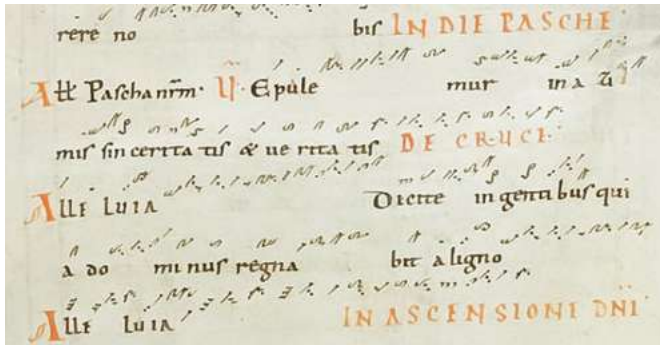 rere no bis IN DIE PASCHE
All Pascha nrm. V. Epule mur in a zi
mis sincerita tis & ve rita tis DE CRUCE.
Alle luia Dicite in gentibus qui
a do minus regna bit a ligno
Alle luia IN ASCENSIONE DNI